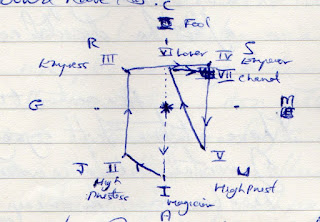 C
Fool
R VI Lover S
Empress III IV Emperor
VII Chariot
G M
J II V
High Priestess High Priest
I
Magician
A